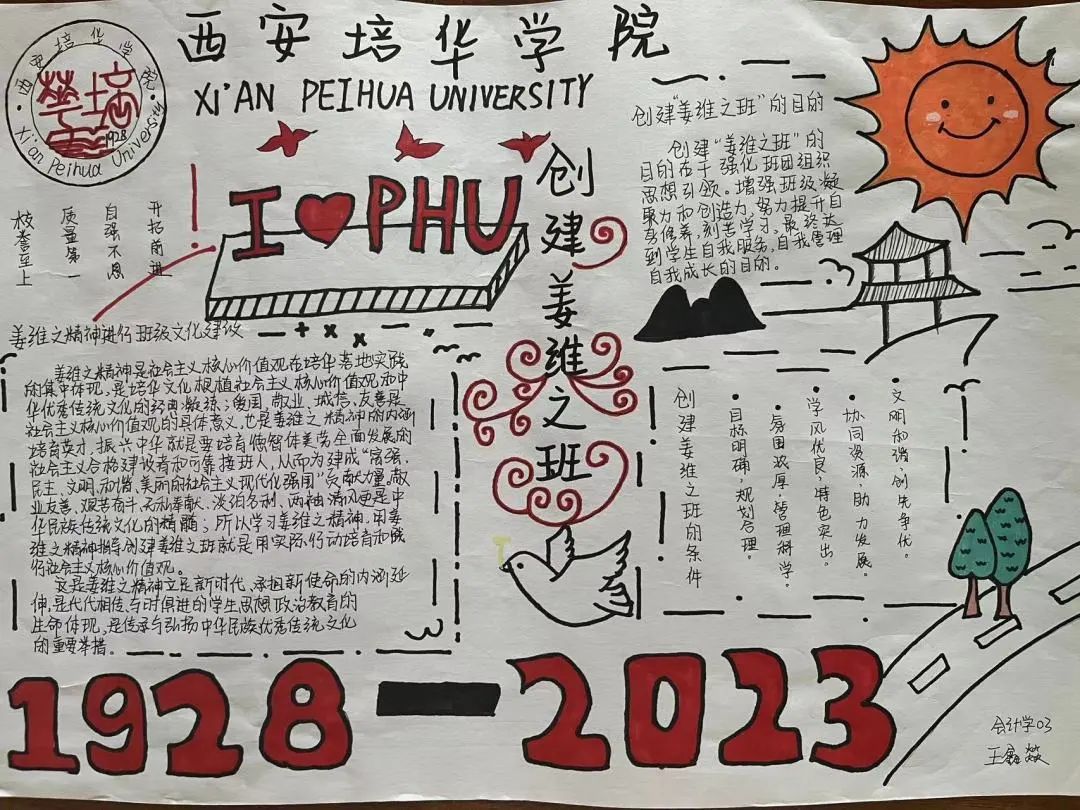 西安培华学院
XI'AN PEIHUA UNIVERSITY
西安培华学院
培华
1928
Xi'an Peihua University
校誉至上
质量第一
自强不息
开拓前进
I ❤ PHU
创建姜维之班
创建“姜维之班”的目的
创建“姜维之班”的
目的在于强化班团组织
思想引领。增强班级凝
聚力和创造力,努力提升自
身修养,刻苦学习。最终达
到学生自我服务,自我管理
自我成长的目的。
姜维之精神进行班级文化建设
姜维之精神是社会主义核心价值观在培华落地实践
的集中体现,是培华文化根植社会主义核心价值观和中
华优秀传统文化的经典凝练;爱国、敬业、诚信、友善是
社会主义核心价值观的具体意义,也是姜维之精神的内涵
培育英才,振兴中华就是要培育德智体美劳全面发展的
社会主义合格建设者和可靠接班人,从而为建成“富强·
民主、文明、和谐、美丽的社会主义现代化强国”贡献力量。敬
业友善、艰苦奋斗、无私奉献、淡泊名利、两袖清风更是中
华民族传统文化的精髓;所以学习姜维之精神,用姜
维之精神指导创建姜维之班就是用实际行动培育和践
行社会主义核心价值观。
这是姜维之精神立足新时代、承担新使命的内涵延
伸,是代代相传、与时俱进的学生思想政治教育的
生命体现,是传承与弘扬中华民族优秀传统文化
的重要举措。
创建姜维之班的条件
·目标明确,规划合理。
·氛围浓厚,管理科学。
·学风优良,特色突出。
·协同资源,助力发展。
·文明和谐,创先争优。
1928—2023
会计学03
王鑫燚